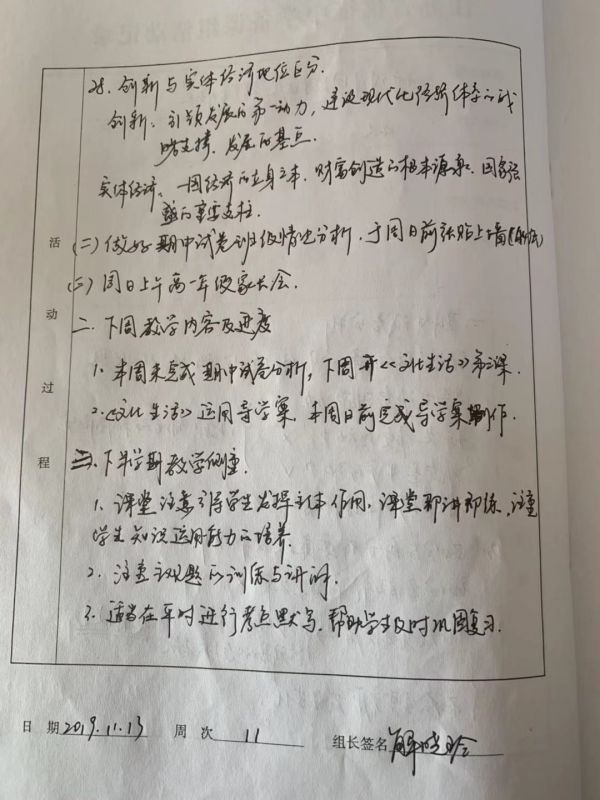 28. 创新与实体经济地位区分.
创新: 引领发展的第一动力, 建设现代化经济体系的战
略支撑. 发展的基点.
实体经济: 一国经济的立身之本. 财富创造的根本源泉. 国家强
盛的重要支柱.
(二) 做好期中试卷班级情况分析. 于周日前张贴上墙
(三) 周日上午高一年级家长会.
二. 下周教学内容及进度
1. 本周末完成期中试卷分析, 下周开《文化生活》第三课.
2. 《文化生活》运用导学案 本周日前完成导学案制作.
三. 下半学期教学侧重.
1. 课堂注意引导学生发挥主体作用. 课堂即讲即练. 注重
学生知识运用能力的培养.
2. 注重主观题的训练与讲评.
3. 适当在平时进行考点默写. 帮助学生及时巩固复习.
活
动
过
程
日 期 2019.11.13 周 次 11 组长签名